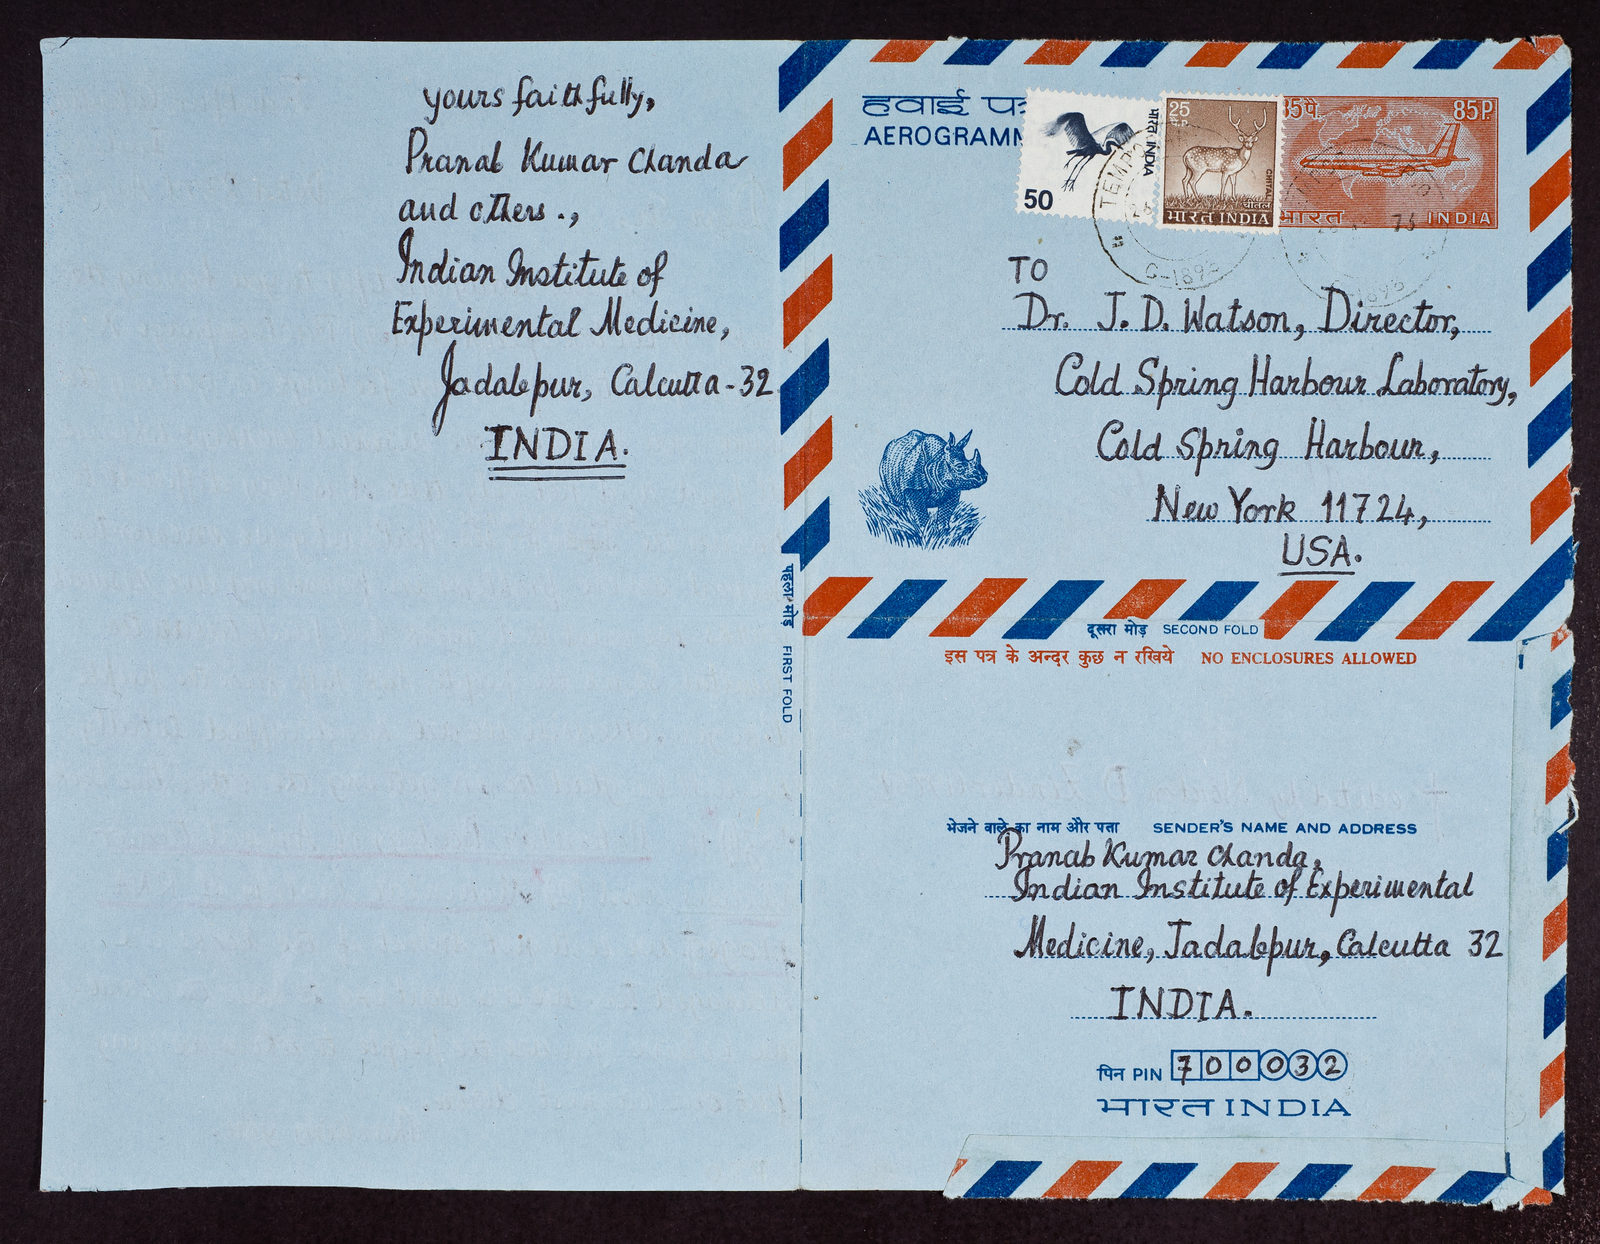 yours faithfully,
Pranab Kumar Chanda
and others.,
Indian Institute of
Experimental Medicine,
Jadabpur, Calcutta-32
INDIA.
पहला मोड़ FIRST FOLD
हवाई
AEROGRAMM
50
भारत INDIA
25
CHITAL चीतल
भारत INDIA
85पै. 85P.
भारत INDIA
C-1893
TO
Dr. J. D. Watson, Director,
Cold Spring Harbour Laboratory,
Cold Spring Harbour,
New York 11724,
USA.
दूसरा मोड़ SECOND FOLD
इस पत्र के अन्दर कुछ न रखिये NO ENCLOSURES ALLOWED
भेजने वाले का नाम और पता SENDER'S NAME AND ADDRESS
Pranab Kumar Chanda,
Indian Institute of Experimental
Medicine, Jadabpur, Calcutta 32
INDIA.
पिन PIN 700032
भारत INDIA